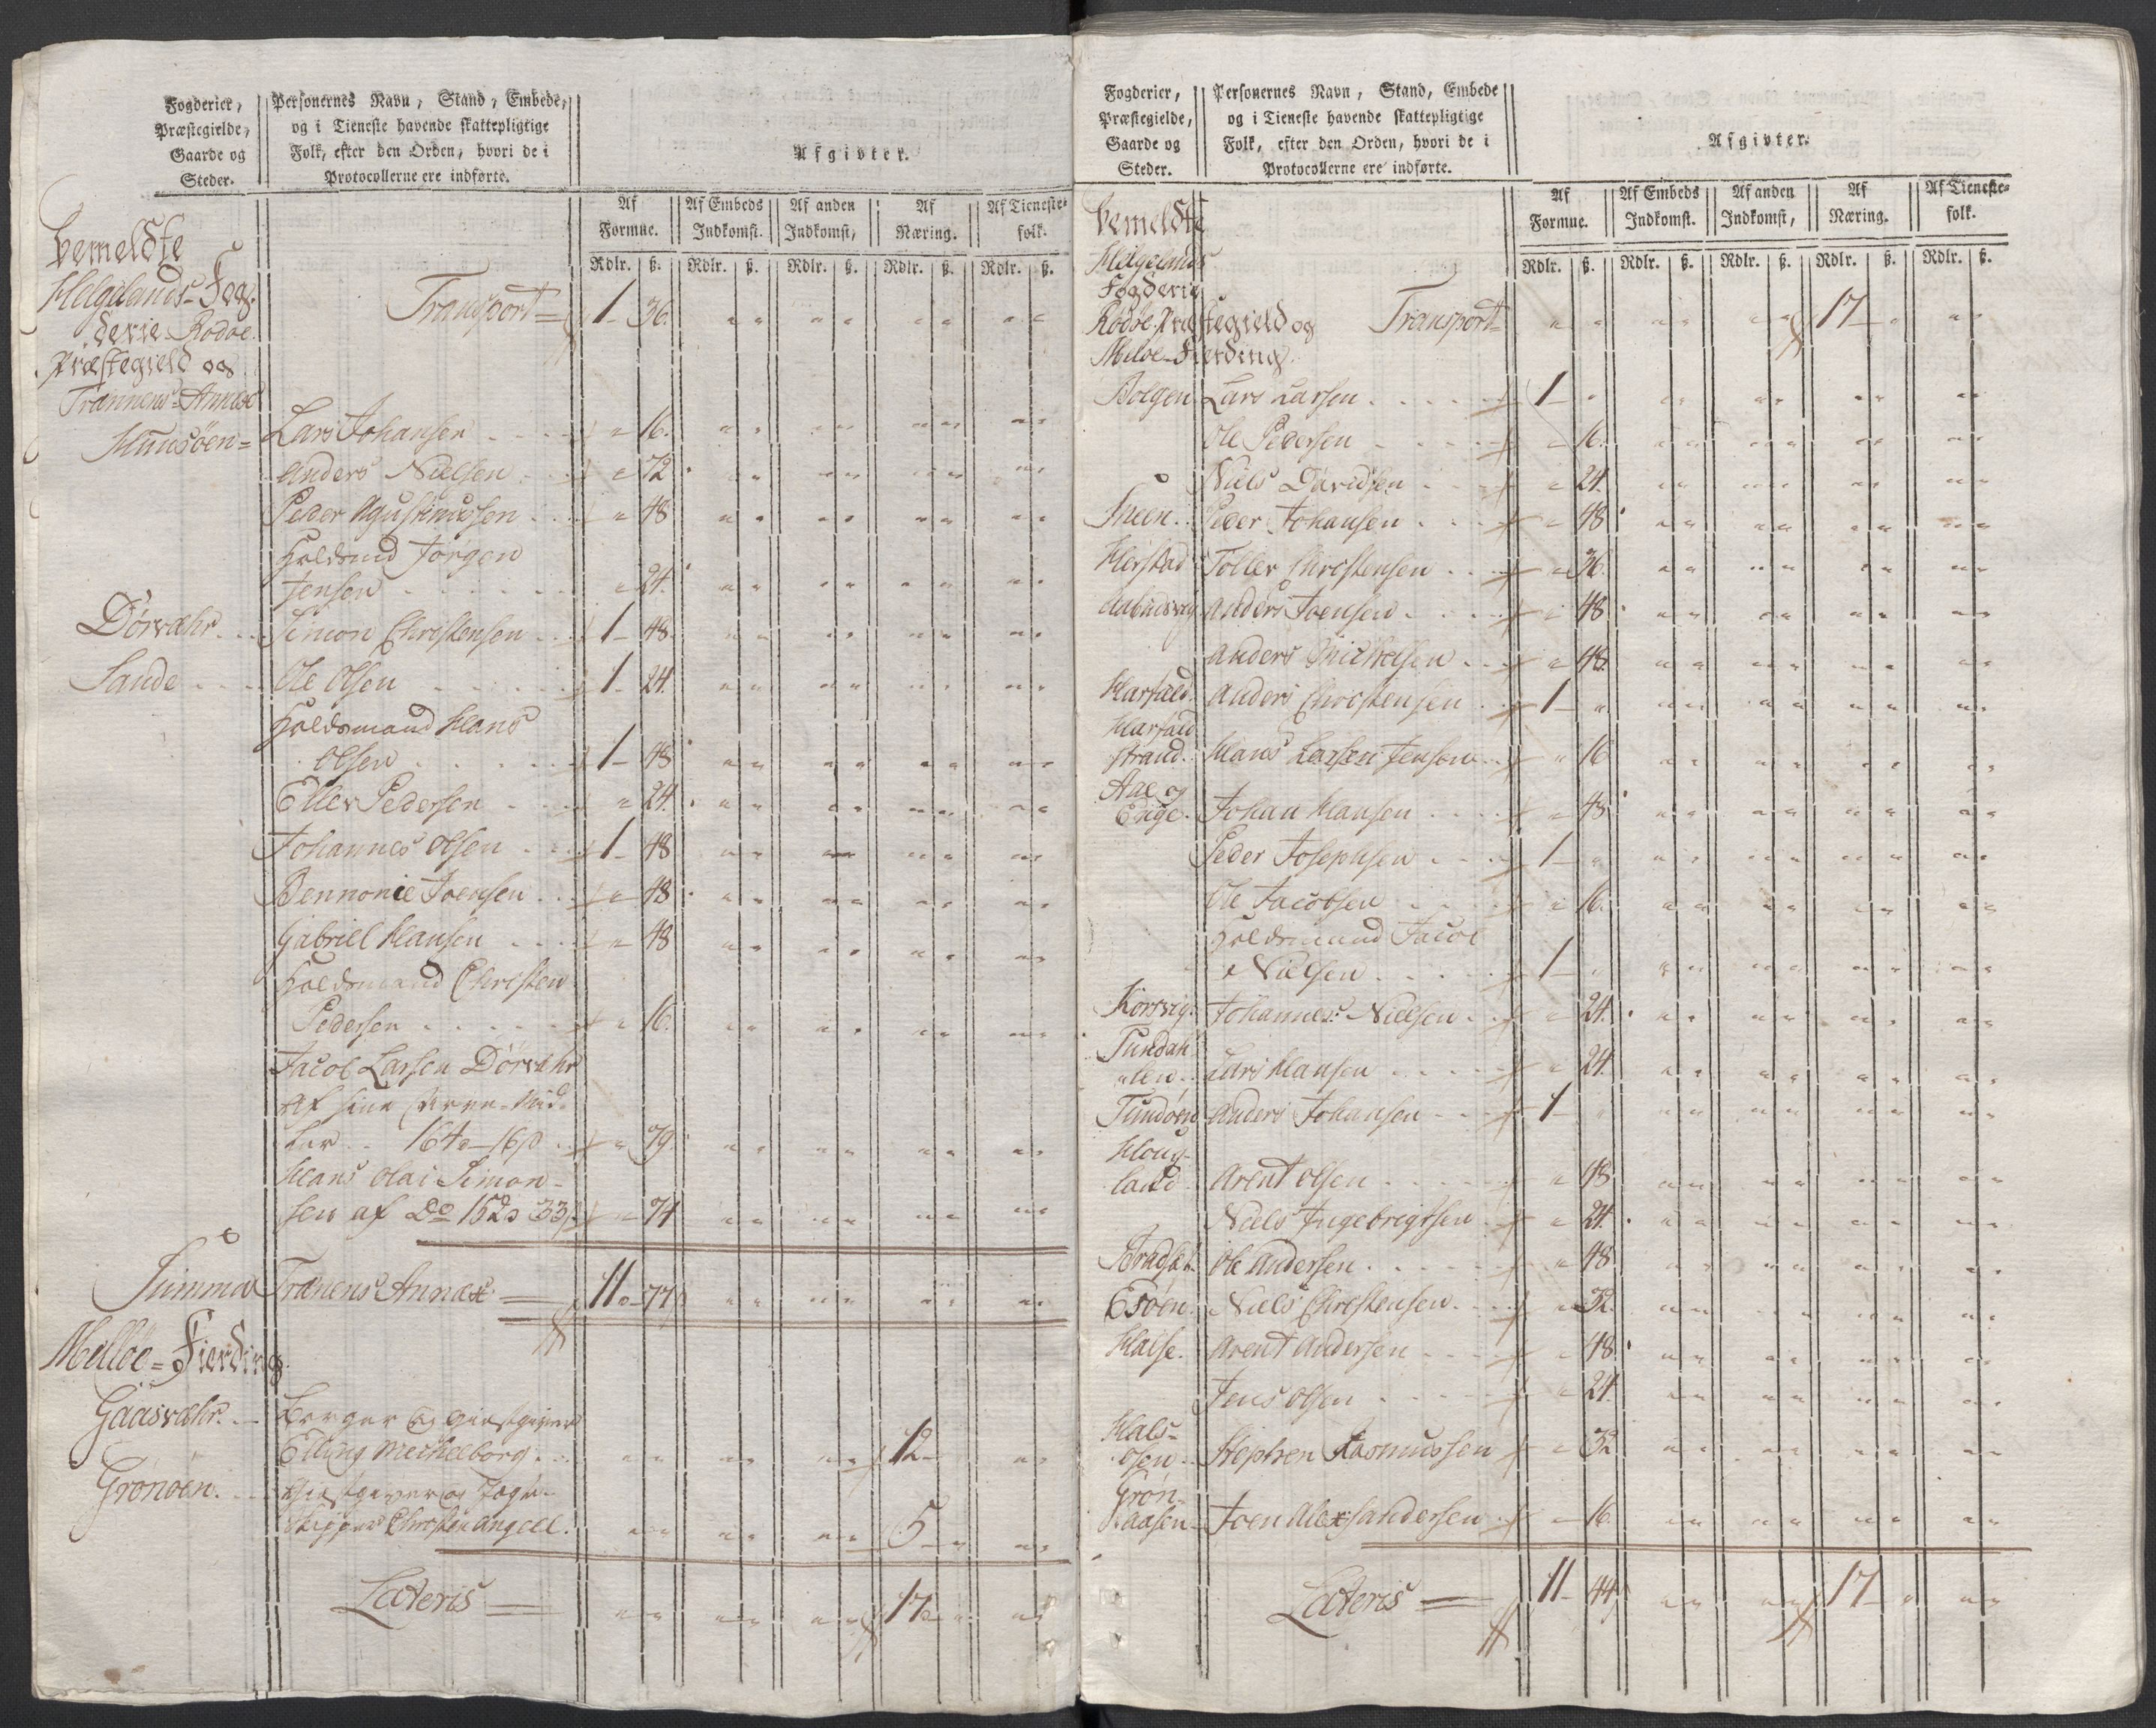 Fogderier, Præstegielde, Gaarde og Steder.
Personernes Navn, Stand, Embede, og i Tieneste havende skattepligtige Folk, efter den Orden, hvori de i Protocollerne ere indførte.
Afgivter.
Af Formue. Af Embeds Indkomst. Af anden Indkomst, Af Næring. Af Tieneste-folk.
Rdlr. ß. Rdlr. ß. Rdlr. ß. Rdlr. ß. Rdlr. ß.
bemeldte
Helgelands-Fog-
derie Rødøe
Præstegield og
Trannens-Annæx
Transport 1 - 36.
Huusøen= Lars Johansen " 16.
Anders Nielsen " 72
Peder Agustinussen " 48
Holdsmd Jørgen
Jensen " 24.
Dørvæhr Simon Christensen 1 - 48.
Sande Ole Olsen 1 - 24.
Holdsmand Hans
Olsen 1 - 48
Eller Pedersen " 24.
Johannes Olsen 1 - 48
Bennonie Joensen " 48
Gabriel Hansen " 48
Holdsmand Christen
Pedersen " 16.
Jacob Larsen Dørvæhr
Af sine Mid-
ler 164 - 16ß " 79
Hans Olai Simon-
sen af Do 152 33ß " 74
Summa Tranens Annæx 11 - 77
Melløe=Fierding
Gaasvæhr. Borger og Giestgiver
Elling Mechelborg 12 -
Grønøen. Giestgiver og Jagte-
skipper Christen Angell. 5 -
Lateris 17 -
Fogderier, Præstegielde, Gaarde og Steder.
Personernes Navn, Stand, Embede og i Tieneste havende skattepligtige Folk, efter den Orden, hvori de i Protocollerne ere indførte.
Afgivter.
Af Formue. Af Embeds Indkomst. Af anden Indkomst, Af Næring. Af Tieneste-folk.
Rdlr. ß. Rdlr. ß. Rdlr. ß. Rdlr. ß. Rdlr. ß.
bemeldte
Helgelands
Fogderie
Rødøe Præstegield og Transport 17 -
Meløe-Fierding.
Bolgen Lars Larsen 1 - "
Ole Pedersen " 16.
Niels Davidsen " 24.
Skeen Peder Johansen " 48
Herstad Toller Christensen " 36.
Anders Joensen " 48
Anders Michelsen " 48
Harfald Anders Christensen 1 - "
Harfald
strand. Hans Larsen Jensen " 16
Aae og
Enge. Johan Hansen " 48
Peder Josephsen 1 - "
Ole Jacobsen " 16.
Holdsmand Jacob
Nielsen 1 - "
Korsvig. Johannes Nielsen " 24.
Lars Hansen " 24.
Anders Johansen 1
Houg-
land Arent Olsen " 48
Niels Ingebrigtsen " 24.
Ole Andersen " 48
Esøen. Niels Christensen " 32.
Halse. Arent Andersen " 48
Jens Olsen " 24.
Hals-
osen Stephen Rasmussen " 32
Grøn-
aasen Joen Alexsandersen " 16
Lateris 11 - 44 17 - "